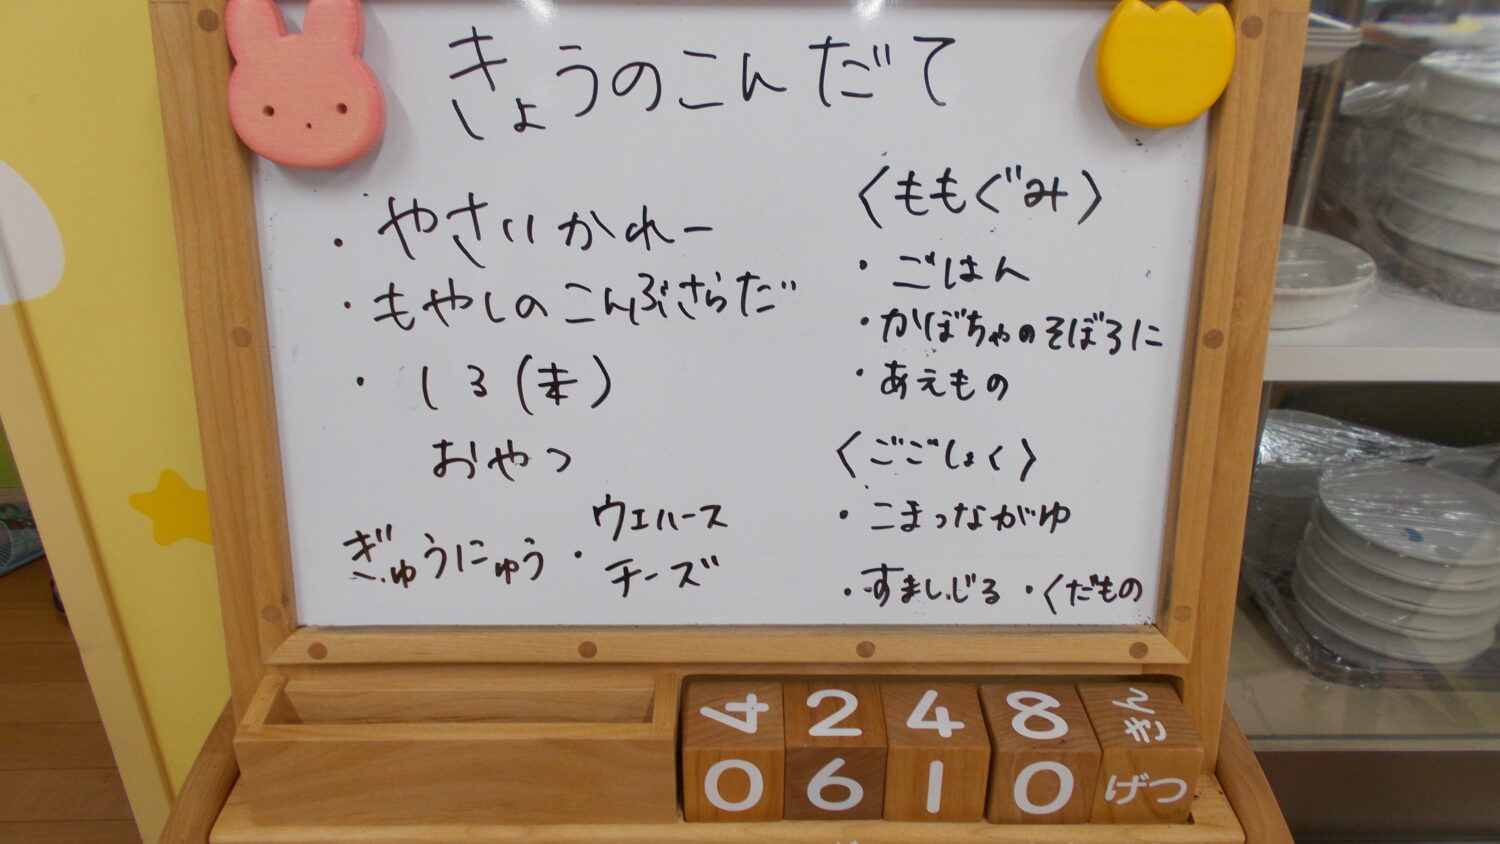 きょうのこんだて
・やさいかれー
・もやしのこんぶさらだ
・しる(末)
おやつ
ぎゅうにゅう・ウエハース
チーズ
〈ももぐみ〉
・ごはん
・かぼちゃのそぼろに
・あえもの
〈ごごしょく〉
・こまつながゆ
・すましじる・くだもの
4 2 4 8 きん
0 6 1 0 げつ